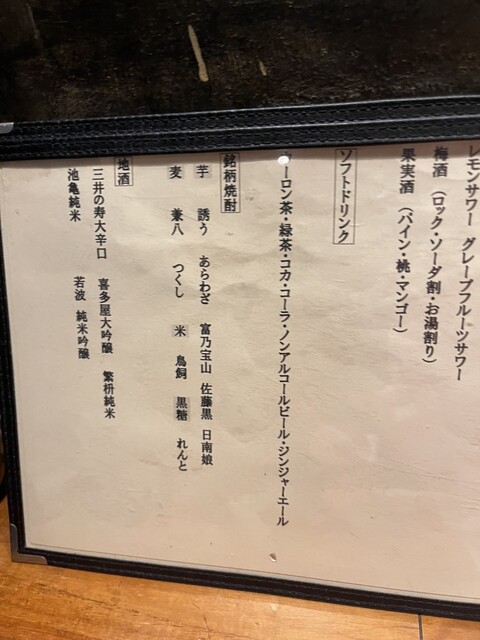 レモンサワー グレープフルーツサワー
梅酒 (ロック・ソーダ割・お湯割り)
果実酒 (パイン・桃・マンゴー)
ソフトドリンク
ーロン茶・緑茶・コカ・コーラ・ノンアルコールビール・ジンジャーエール
銘柄焼酎
芋 誘う あらわざ 富乃宝山 佐藤黒 日南娘
麦 兼八 つくし 米 鳥飼 黒糖 れんと
地酒
三井の寿大辛口 喜多屋大吟醸 繁枡純米
池亀純米 若波 純米吟醸